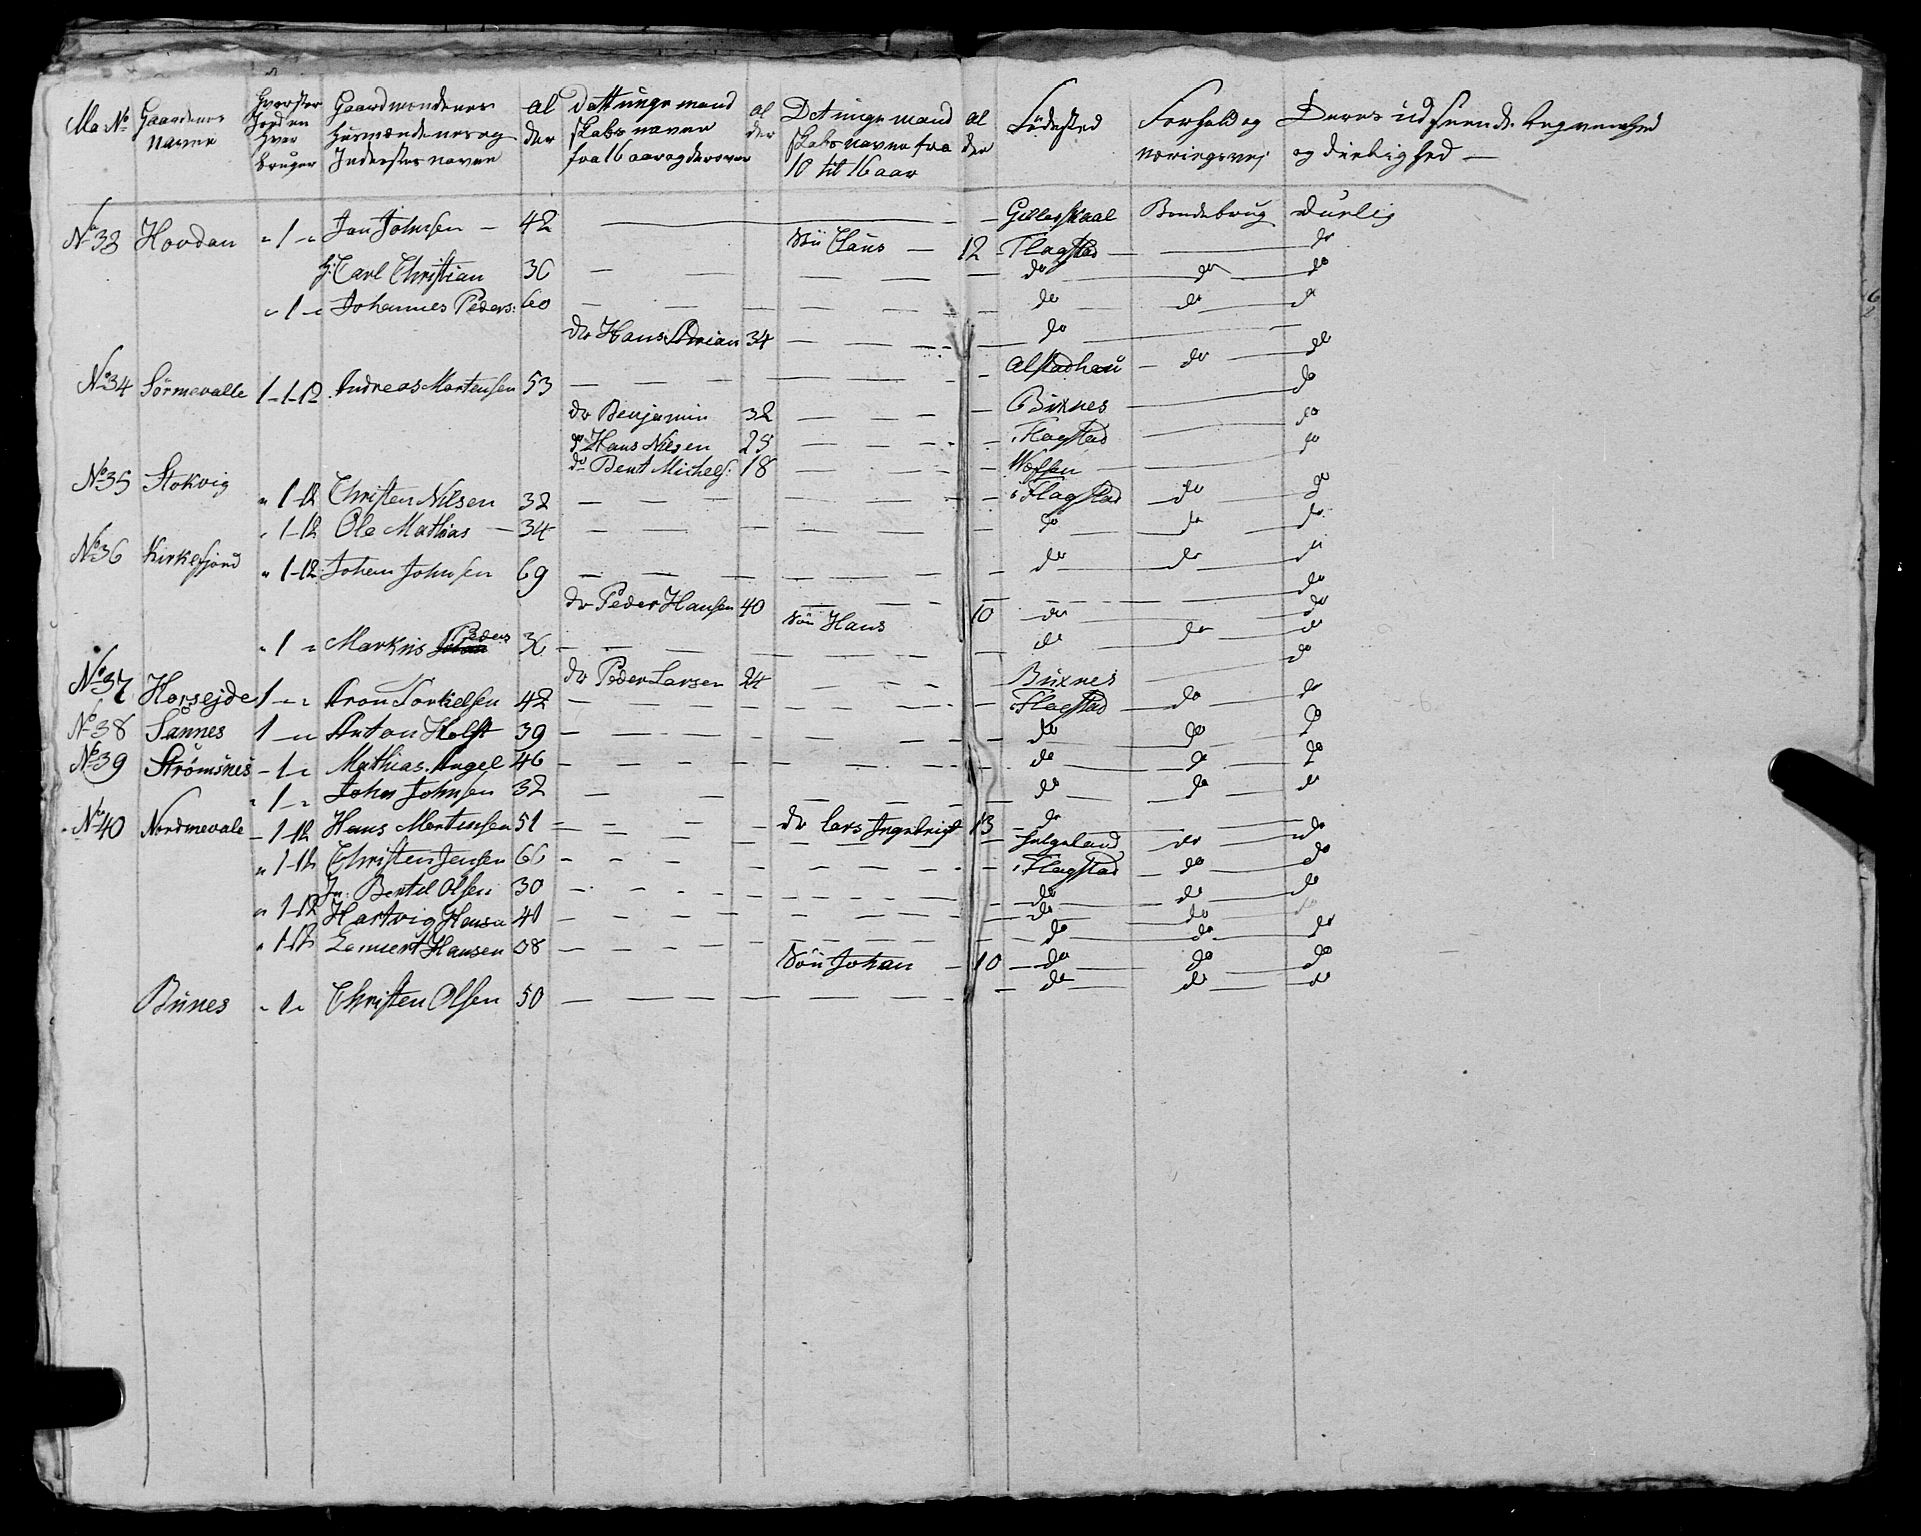 Ma No Gaardenes Navne
Hvorstor Jorden Hver bruger
Gaardmendenes Husmændenes og Inderstes navne
al der
Dett unge mand skabs navne fra 16 aar og derover
al der
Det unge mand skabs navne fra 10 til 16 aar
al der
Födested
Forhold og næringsvej
Deres udseende og dulighed
No 33 Hovdan " 1 " Jan Johnsen - 42 Gillesskaal Bondebrug Durlig
Sön Claus 12 Flagstad do
Carl Christian 36 do do do
" 1 " Johannes Peders: 60 do do do
do Hans Adrian 34 do
No 34 Sörmevalle 1-1-12 Andreas Mortensen 53 Alstadhau do do
do Benjamin 32 Buxnes do
do Hans Nilsen 25 Flagstad do
do Bent Michels: 18 Wefsen do
No 35 Stokvig " 1-12 Christen Nilsen 32 Flagstad do do
" 1-12 Ole Mathias 34 do do do
No 36 Kirkefjord " 1-12 Johan Johnsen 69 do do do
do Peder Hansen 40 do
Sön Hans 10 do do
" 1 " Markus Peders 36 do do do
do Peder Larsen 24 Buxnes do
No 37 Horsejde 1 - " Aron Torkelsen 42 Flagstad do do
No 38 Sannes 1 - " Anton Holst 39 do do do
No 39 Strömsnes - 1 " Mathias Angel 46 do do do
" 1 - " John Johnsen 32 do do do
No 40 Nordmevale - 1-12 Hans Mortensen 51
do Lars Ingebrigt 13 do do
" 1-12 Christen Jensen 66 helgeland do do
In: Bertel Olsen 30 Flagstad do do
" 1-12 Hartvig Hansen 40 do do do
" 1-12 Lemert Hansen do do do
Sön Johan 10 do do do
Bunes " 1 " Christen Olsen 50 do do do